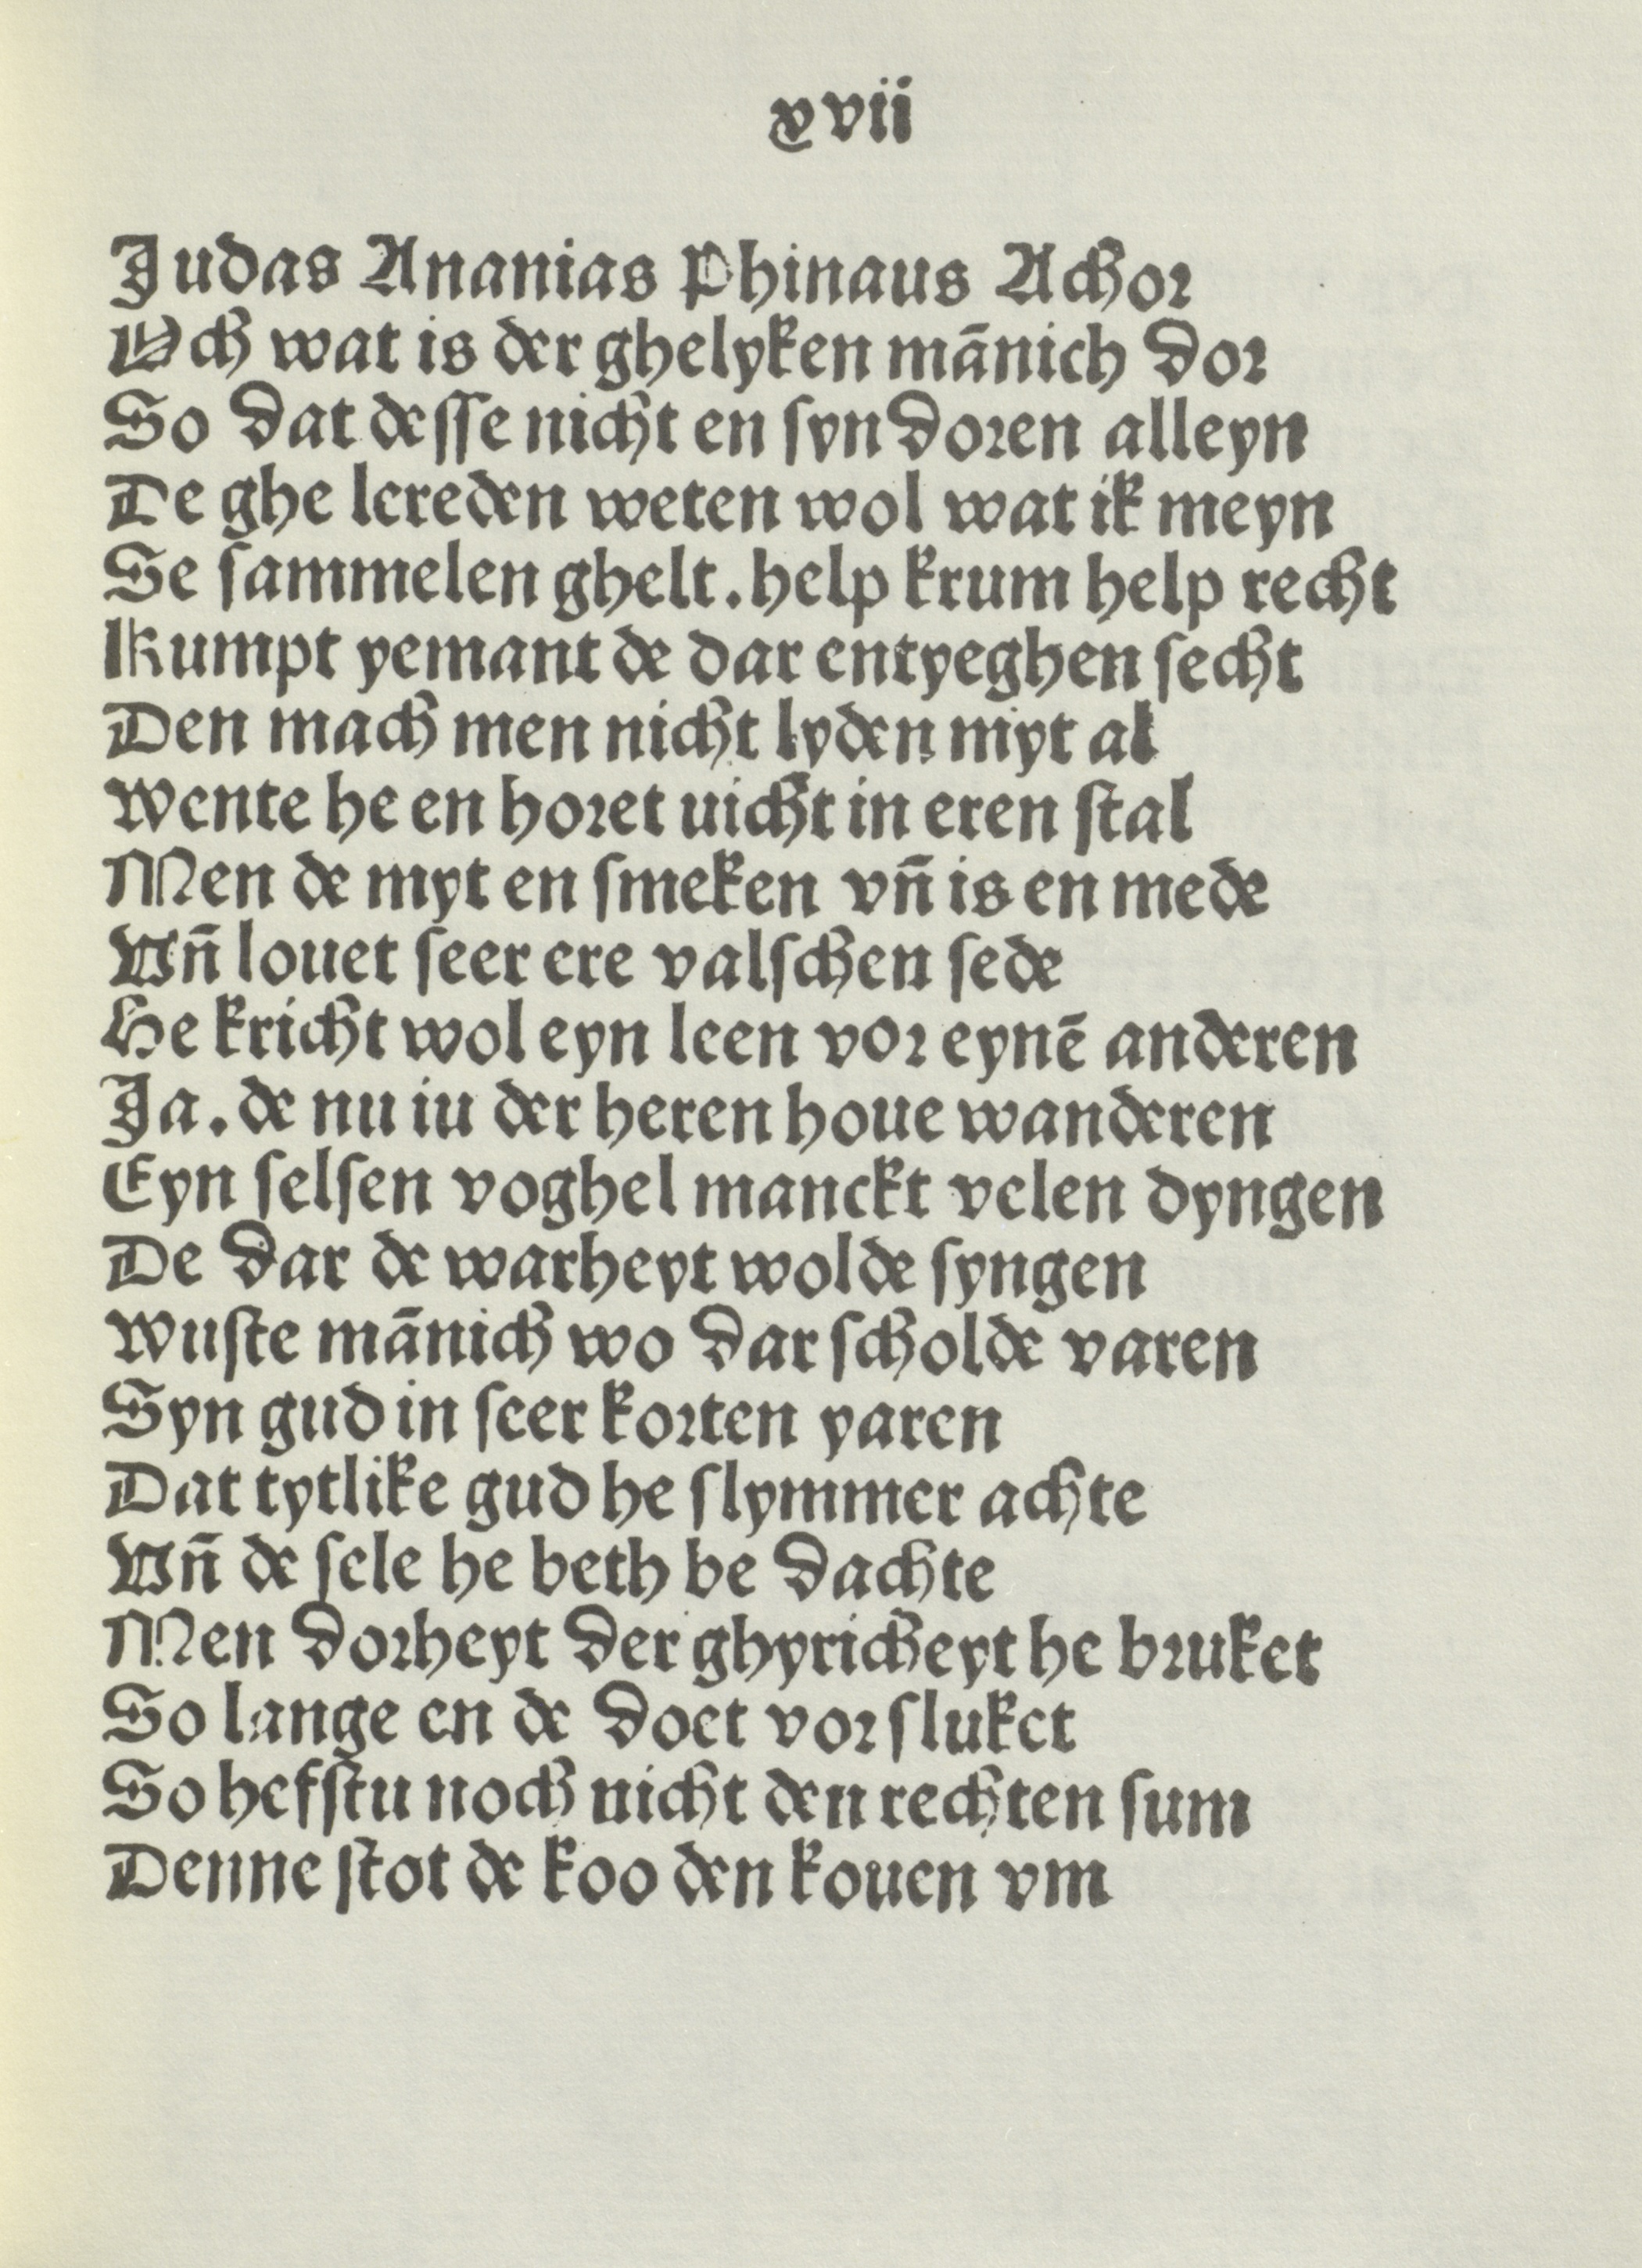 xvii
Judas Ananias Phinaus Achor
Och wat is der ghelyken mānich dor
So dat desse nicht en syn doren alleyn
De ghe lereden weten wol wat ik meyn
Se sammelen ghelt. help krum help recht
Kumpt yemant de dar entyeghen secht
Den mach men nicht lyden myt al
Wente he en horet uicht in eren stal
Men de myt en smeken vn̄ is en mede
Vn̄ louet seer ere valschen sede
He kricht wol eyn leen vor eynē anderen
Ja. de nu iu der heren houe wanderen
Eyn selsen voghel manckt velen dyngen
De dar de warheyt wolde syngen
Wuste mānich wo dar scholde varen
Syn gud in seer korten yaren
Dat tytlike gud he slymmer achte
Vn̄ de sele he beth be dachte
Men dorheyt der ghyricheyt he bruket
So lange en de doet vor sluket
So hefstu noch nicht den rechten sum
Denne stot de koo den kouen vm